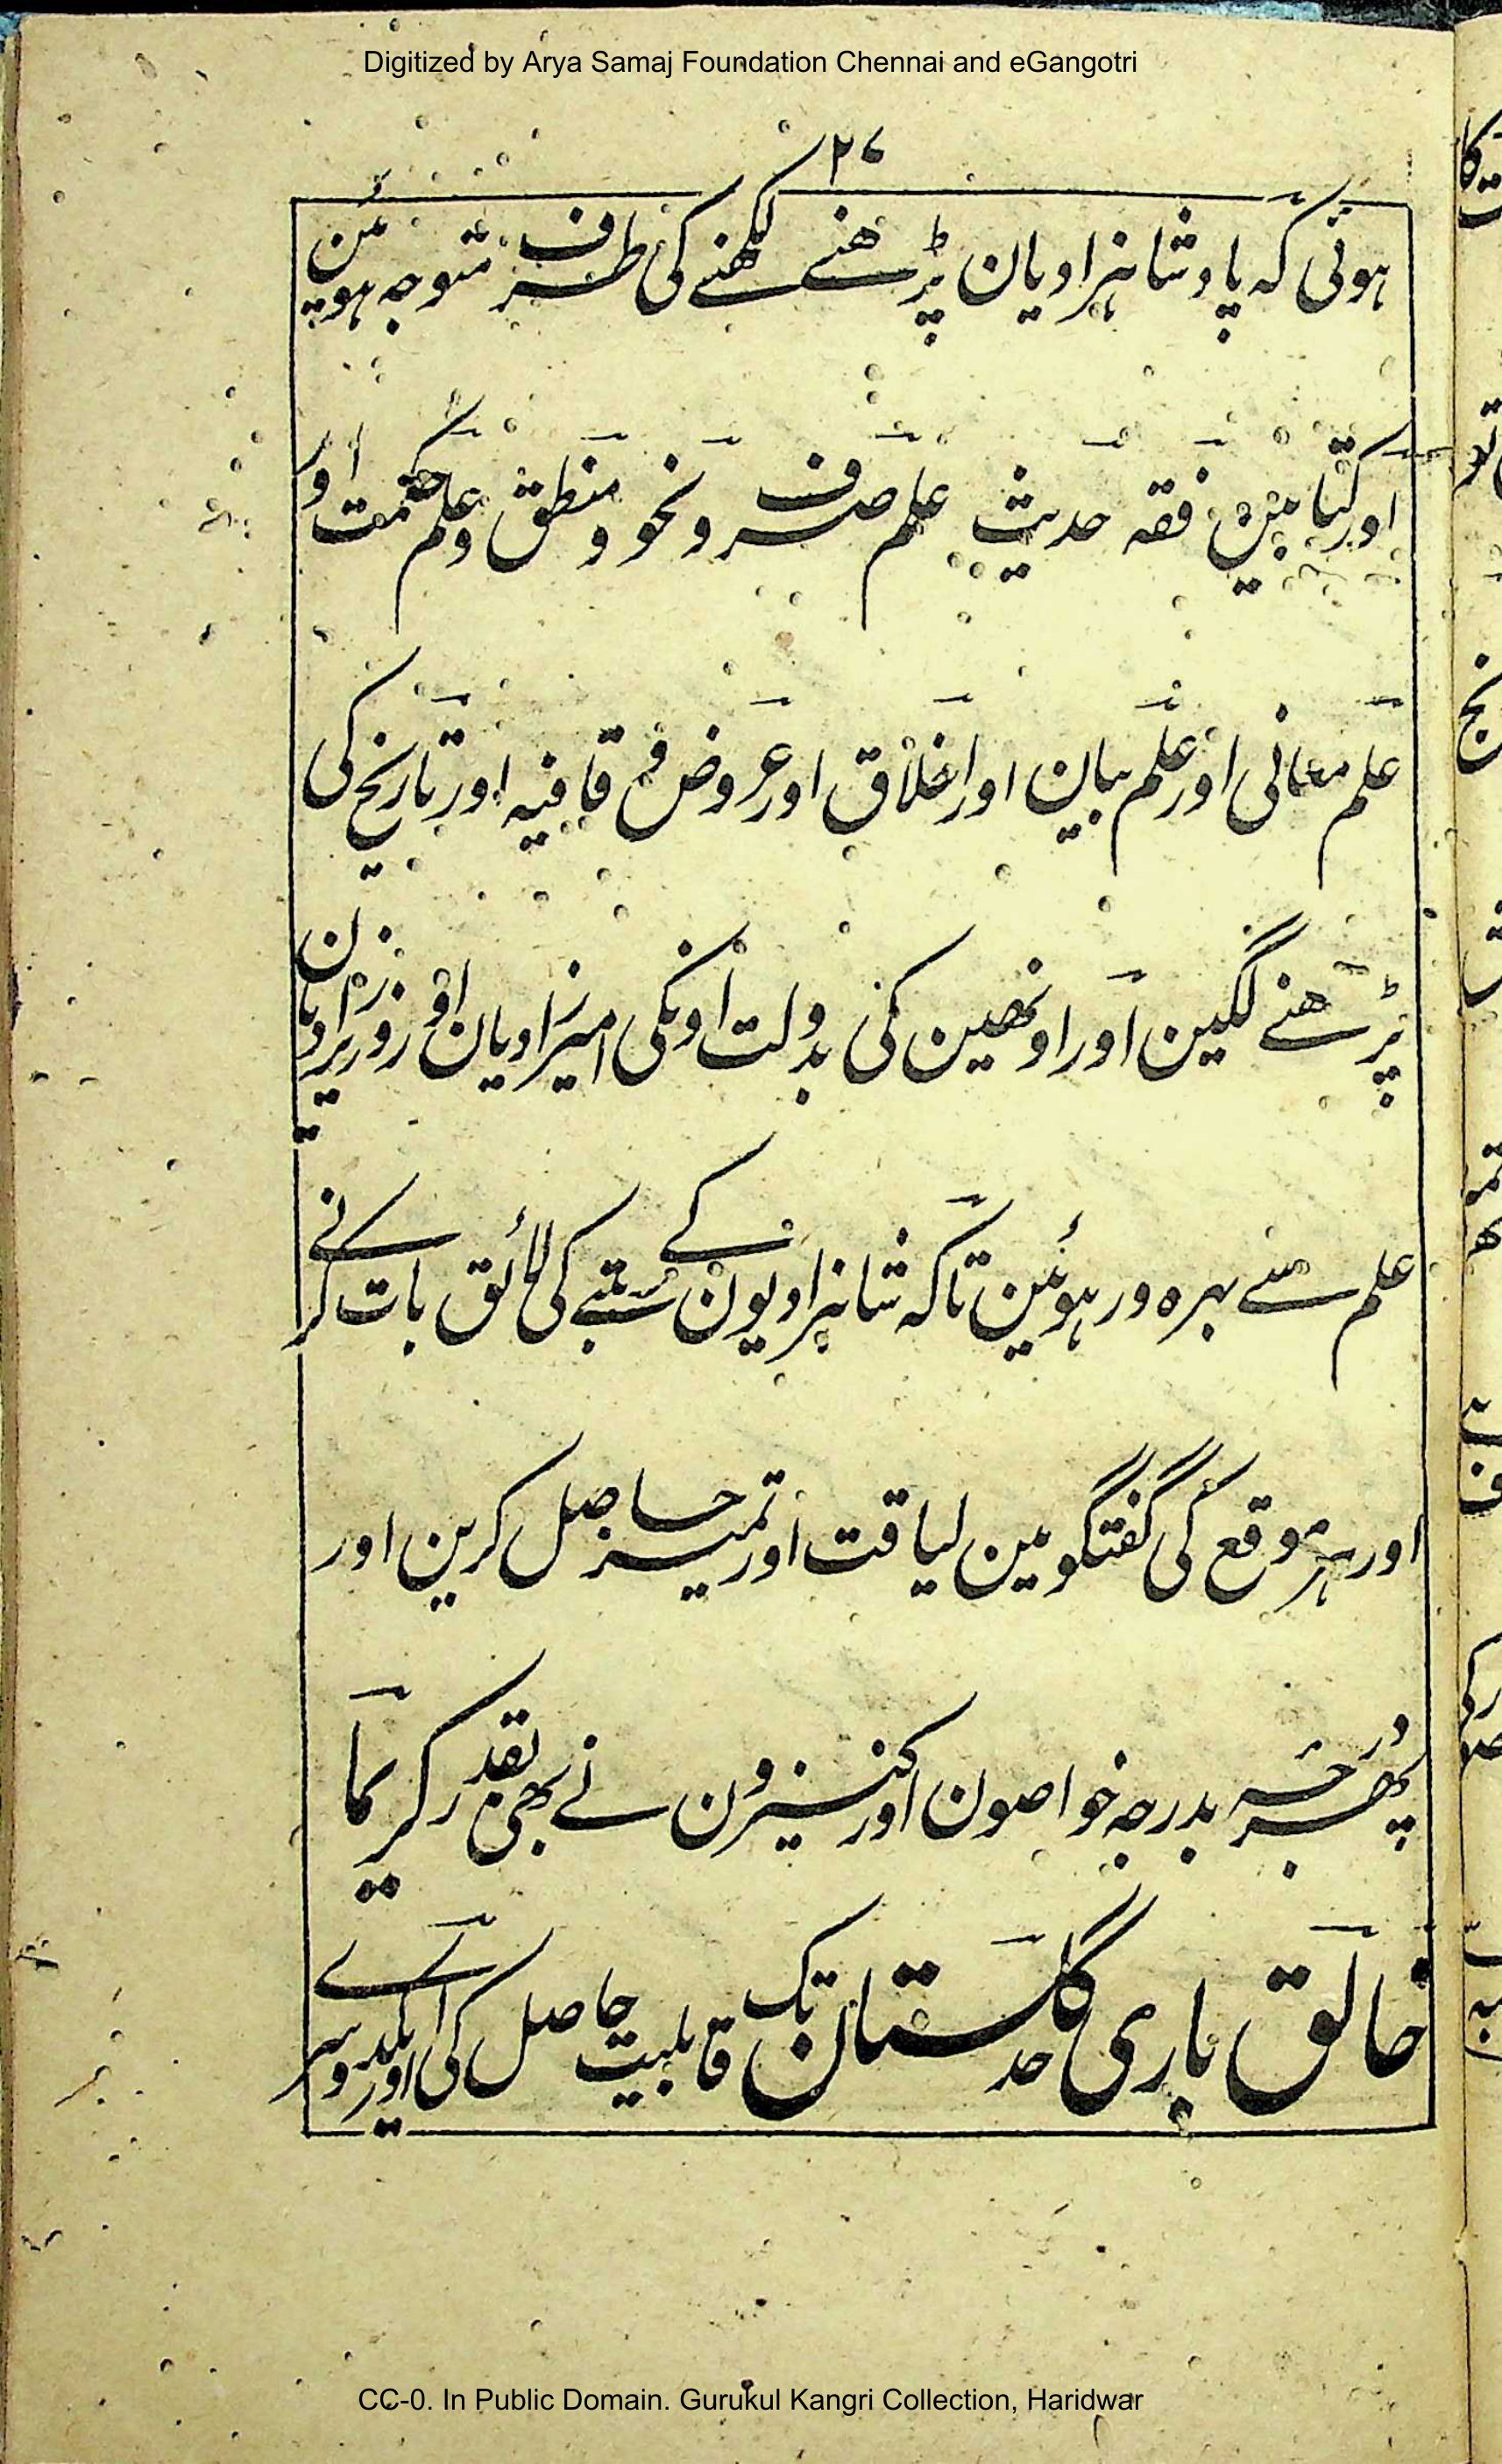 Digitized by Arya Samaj Foundation Chennai and eGangotri
۲۷
ہوئی کہ پادشاہزادیان پڑھنے لکھنے کی طرف متوجہ ہوئین
اور کتابین فقہ حدیث علم صرف و نحو و منطق و علم حکمت اور
علم معانی اور علم بیان اور اخلاق اور عروض و قافیہ اور تاریخ کی
پڑھنے لگین اور اونھین کی بدولت اونکی امیرزادیان اور وزیرزادیان
علم سے بہرہ ور ہوئین تاکہ شاہزادیون کے رتبے کی لائق بات کرنے
اور ہر موقع کی گفتگو مین لیاقت اور تمیز حاصل کرین اور
پھر درجہ بدرجہ خواصون اور کنیزون نے بھی بقدر کریما
خالق باری حد گلستان تک قابلیت حاصل کی اور ایکدوسرے
CC-0. In Public Domain. Gurukul Kangri Collection, Haridwar